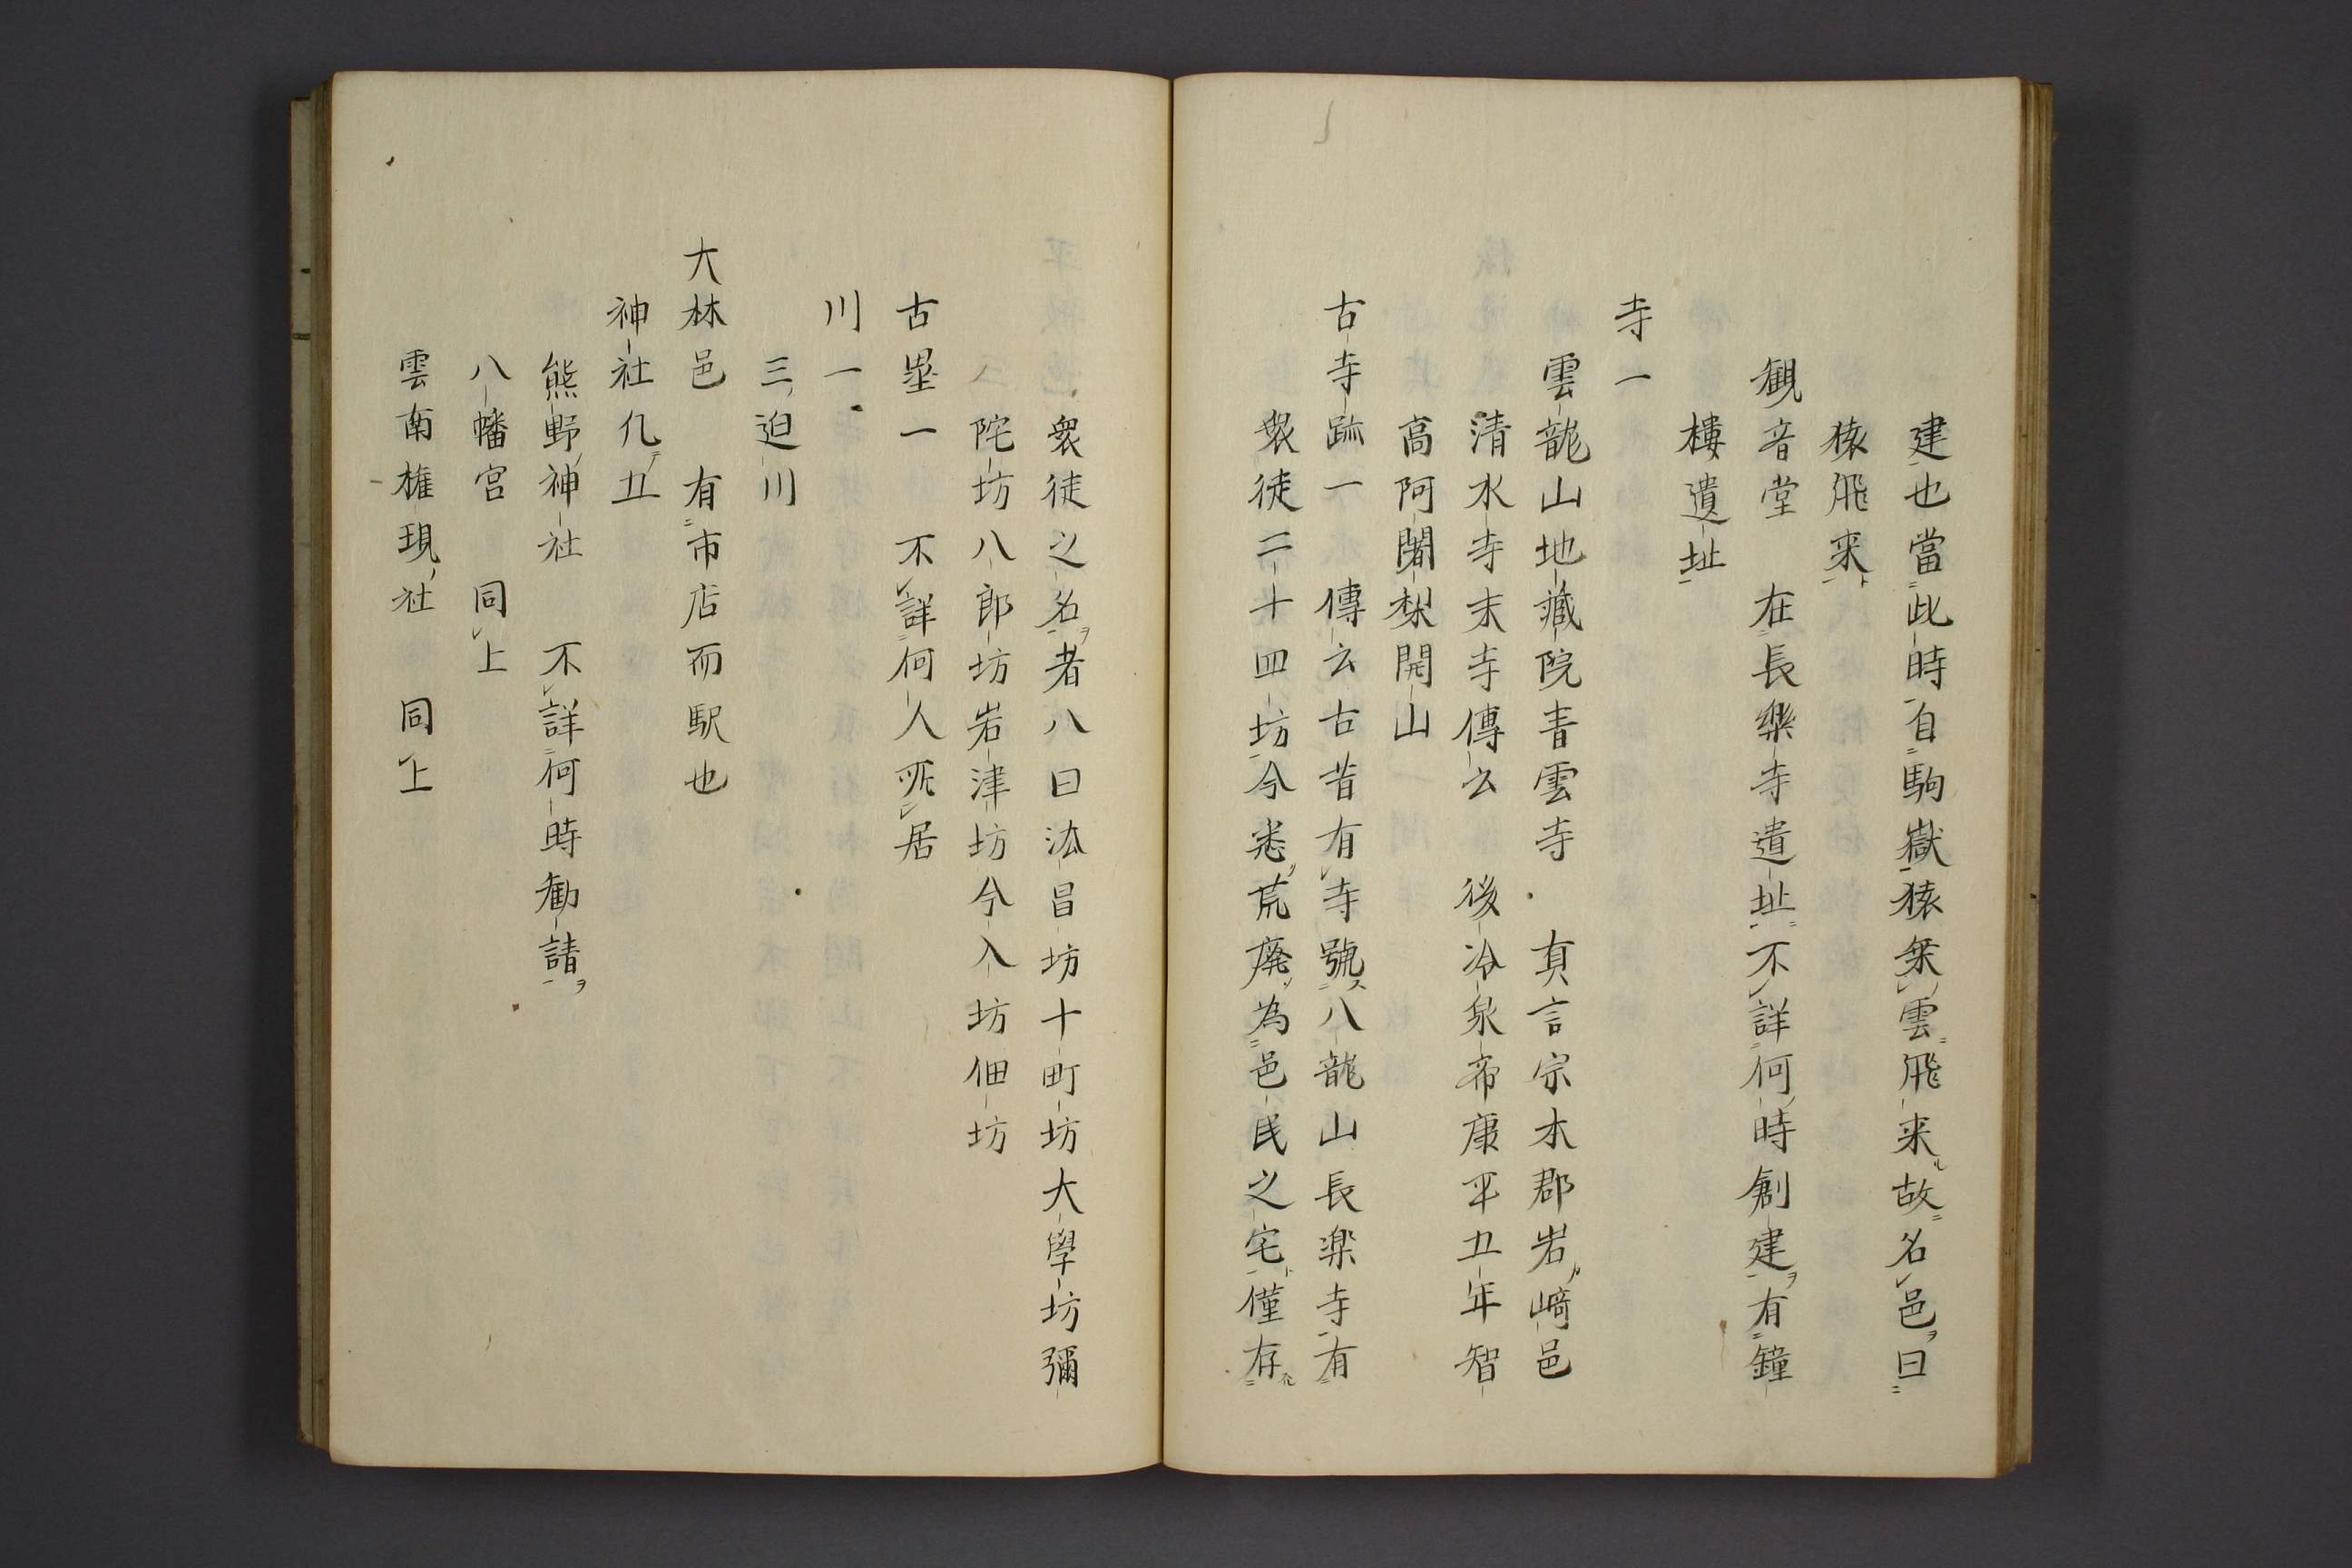 建也當此時自駒嶽猿乗雲飛来故名邑曰
猿飛来
観音堂　在長樂寺遺址不詳何時創建有鐘
樓遺址
寺一
雲龍山地藏院青雲寺　真言宗本郡岩﨑邑
清水寺末寺傳云　後冷泉帝康平五年智
高阿闍梨開山
古寺跡一　傳云古昔有寺號八龍山長楽寺有
衆徒二十四坊今悉荒廃為邑民之宅僅存
衆徒之名者八曰法昌坊十町坊大學坊彌
陀坊八郎坊岩津坊今入坊佃坊
古塁一　不詳何人所居
川一
三迫川
大林邑　有市店而駅也
神社凡五
熊野神社　不詳何時勧請
八幡宮　同上
雲南権現社　同上